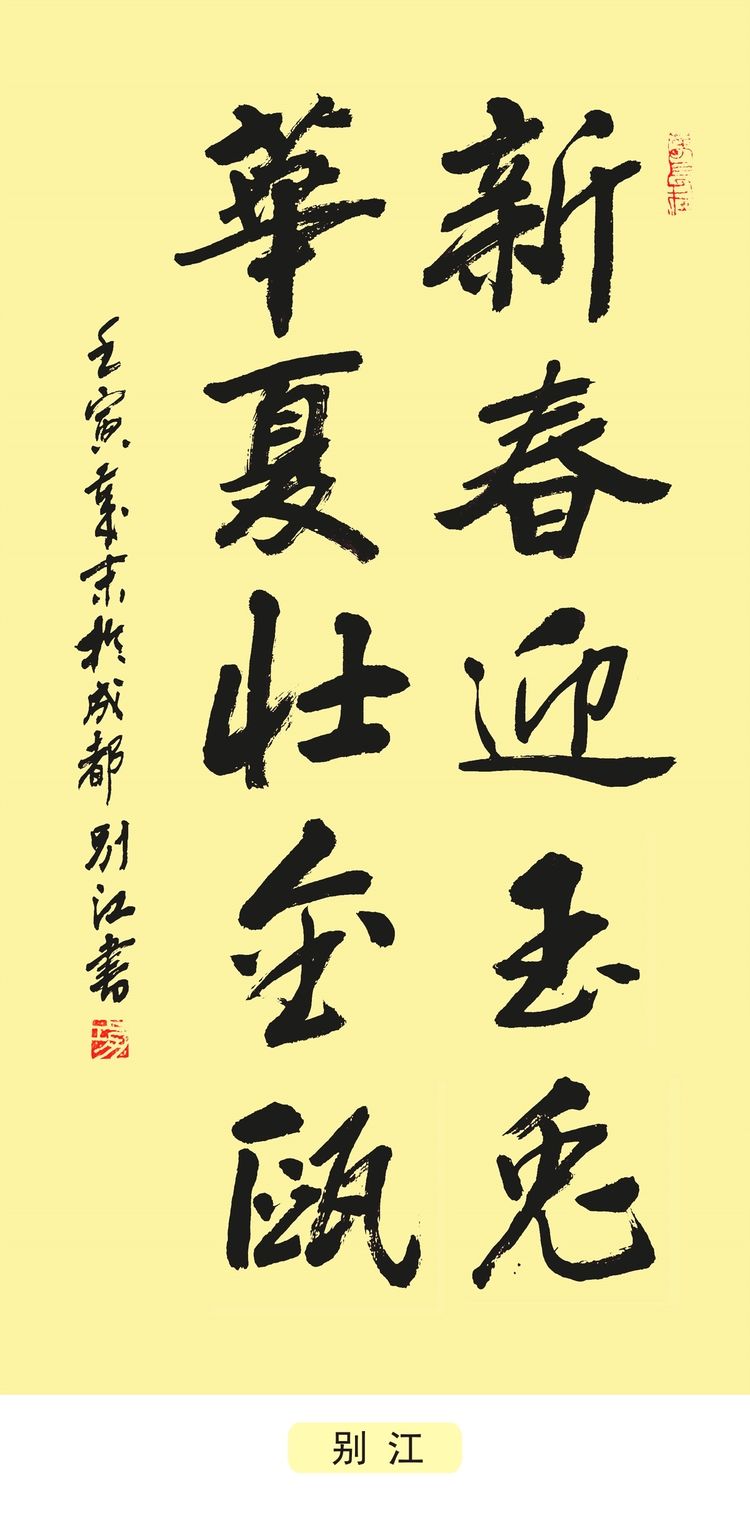 新春迎玉兔
華夏壮金瓯
壬寅岁末於成都别江書
别江